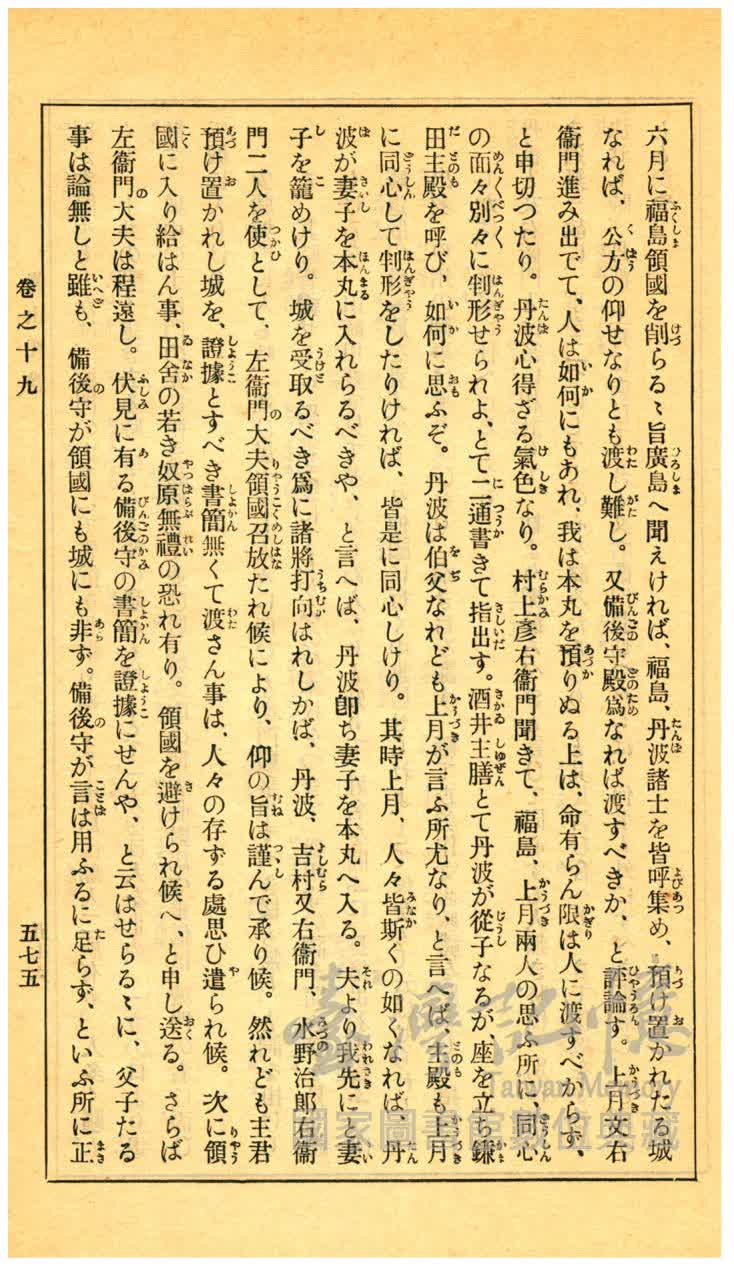 六月に福島領國を削らるゝ旨廣島へ聞えければ、福島、丹波諸士を皆呼集め、預け置かれたる城
なれば、公方の仰せなりとも渡し難し。又備後守殿爲なれば渡すべきか、と評論す。上月文右
衞門進み出でて、人は如何にもあれ、我は本丸を預りぬる上は、命有らん限は人に渡すべからず、
と申切つたり。丹波心得ざる氣色なり。村上彥右衞門聞きて、福島、上月兩人の思ふ所に、同心
の面々別々に判形せられよ、とて二通書きて指出す。酒井主膳とて丹波が從子なるが、座を立ち鎌
田主殿を呼び、如何に思ふぞ。丹波は伯父なれども上月が言ふ所尤なり、と言へば、主殿も上月
に同心して判形をしたりければ、皆是に同心しけり。其時上月、人々皆斯くの如くなれば、丹
波が妻子を本丸に入れらるべきや、と言へば、丹波卽ち妻子を本丸へ入る。夫より我先にと妻
子を籠めけり。城を受取るべき爲に諸將打向はれしかば、丹波、吉村又右衞門、水野治郎右衞
門二人を使として、左衞門大夫領國召放たれ候により、仰の旨は謹んで承り候。然れども主君
預け置かれし城を、證據とすべき書簡無くて渡さん事は、人々の存ずる處思ひ遣られ候。次に領
國に入り給はん事、田舍の若き奴原無禮の恐れ有り。領國を避けられ候へ、と申し送る。さらば
左衞門大夫は程遠し。伏見に有る備後守の書簡を證據にせんや、と云はせらるゝに、父子たる
事は論無しと雖も、備後守が領國にも城にも非ず。備後守が言は用ふるに足らず、といふ所に正
卷之十九
五七五
臺灣記憶
Taiwan Memory
國家圖書館數位典藏